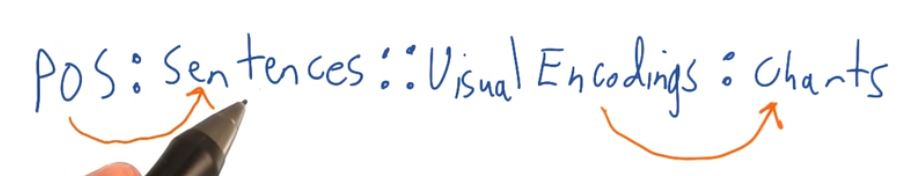 POS: Sentences:: Visual Encodings: Charts